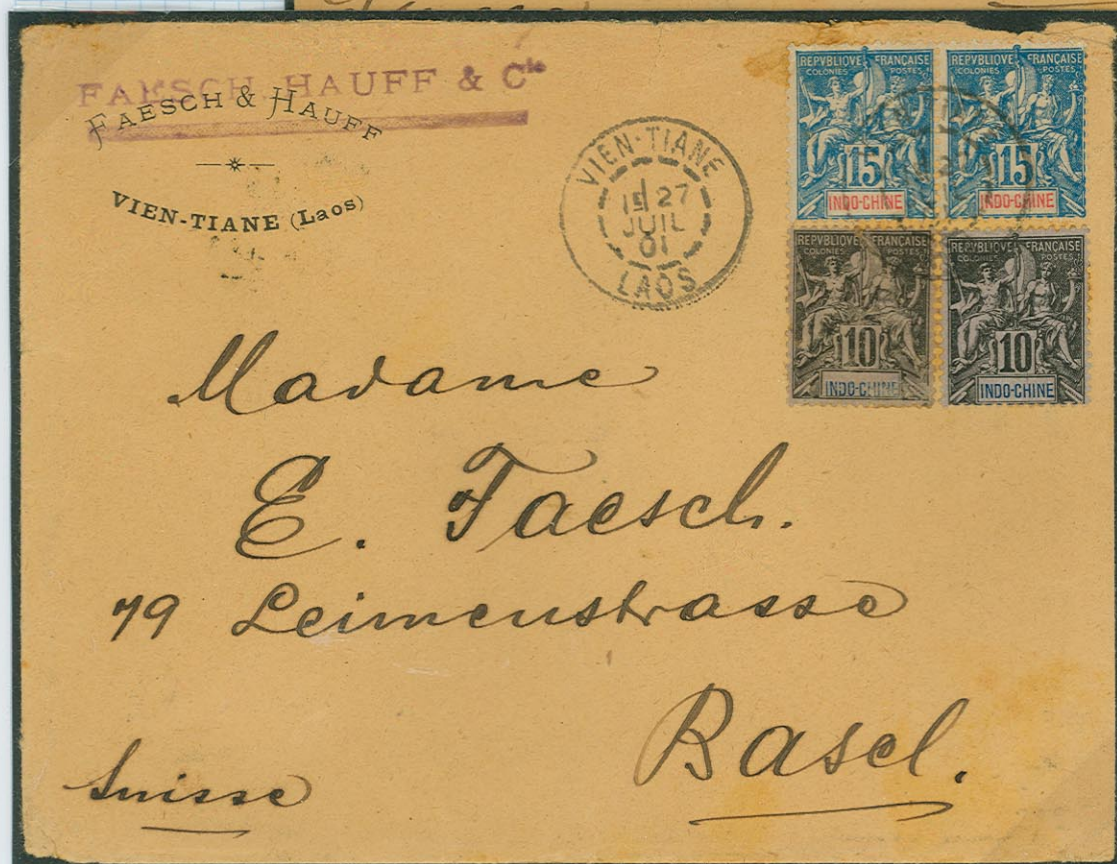 FAESCH HAUFF & Cie
FAESCH & HAUFF
VIEN-TIANE (Laos)
VIEN-TIANE
27
JUIL
01
LAOS
REPVBLIQVE FRANÇAISE
COLONIES POSTES
15
INDO-CHINE
REPVBLIQVE FRANÇAISE
COLONIES POSTES
15
INDO-CHINE
REPVBLIQVE FRANÇAISE
COLONIES POSTES
10
INDO-CHINE
REPVBLIQVE FRANÇAISE
COLONIES POSTES
10
INDO-CHINE
Madame
E. Faesch.
79 Leimenstrasse
Basel.
Suisse